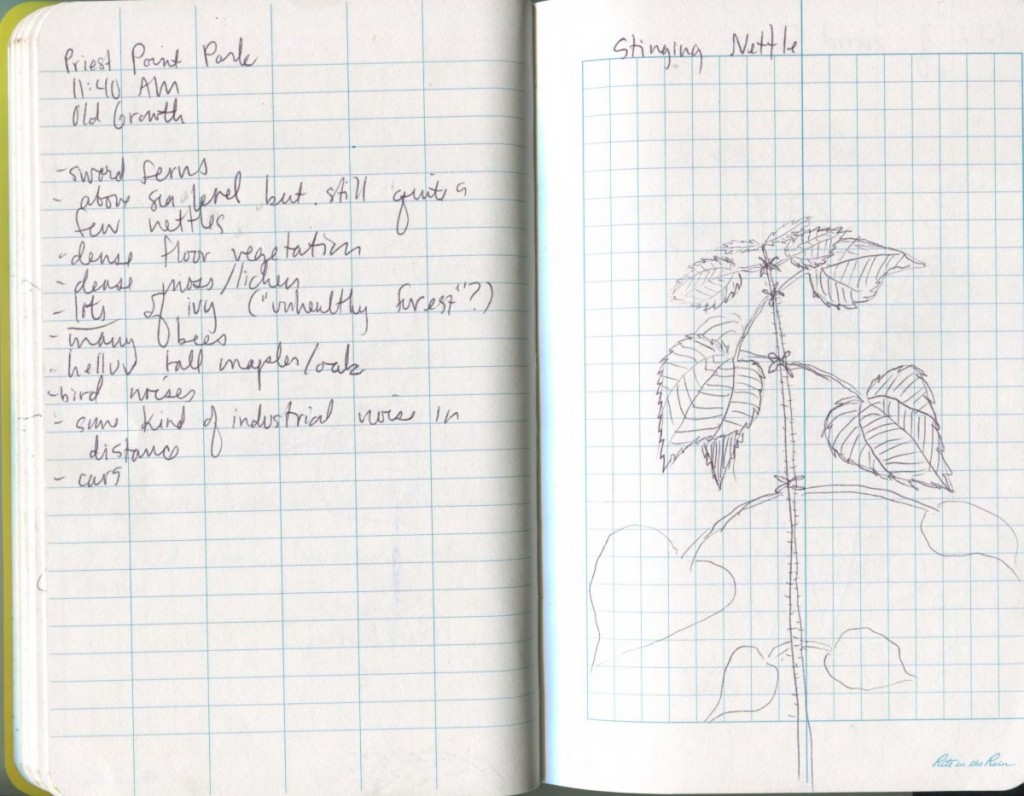 Priest Point Park
11:40 AM
Old Growth
- sword ferns
- above sea level but still quite a
few nettles
- dense floor vegetation
- dense moss/lichen
- lots of ivy ("unhealthy forest"?)
- many bees
- helluv tall maples/oak
- bird noises
- some kind of industrial noise in
distance
- cars
Stinging Nettle
Rite in the Rain